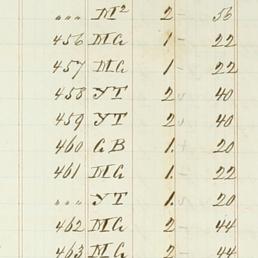 „„ M² 2 - 56
456 MG 1 - 22
457 MG 1 - 22
458 YT 2 40
459 YT 2 40
460 GB 1. 20
461 MG 1. - 22
„„ YT 1. 20
462 MG 2 - 44
463 MG 2 - 44